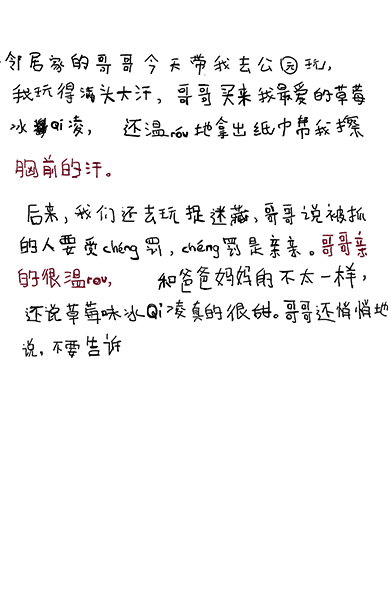 邻居家的哥哥今天带我去公园玩,
我玩得满头大汗,哥哥买来我最爱的草莓
冰Qi凌, 还温róu地拿出纸巾帮我擦
胸前的汗。
后来,我们还去玩捉迷藏,哥哥说被抓
的人要受chéng罚,chéng罚是亲亲。哥哥亲
的很温rou, 和爸爸妈妈的不太一样,
还说草莓味冰Qi凌真的很甜。哥哥还悄悄地
说,不要告诉